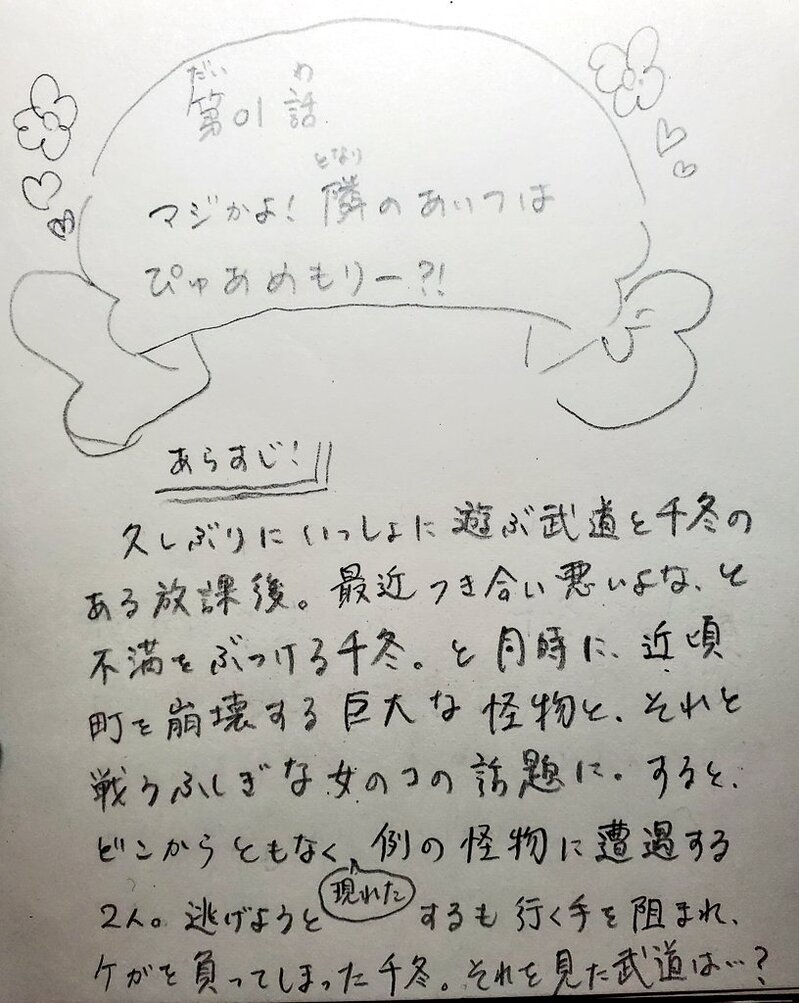 だい わ
第01話
となり
マジかよ!隣のあいつは
ぴゅあめもりー?!
あらすじ!
久しぶりにいっしょに遊ぶ武道と千冬の
ある放課後。最近つき合い悪いよな、と
不満をぶつける千冬。と同時に、近頃
町を崩壊する巨大な怪物と、それと
戦うふしぎな女のコの話題に。すると、
どこからともなく現れた例の怪物に遭遇する
2人。逃げようとするも行く手を阻まれ、
ケガを負ってしまった千冬。それを見た武道は…?